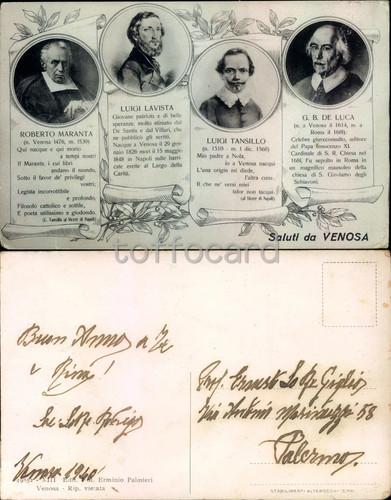 ROBERTO MARANTA
(n. Venosa 1476, m. 1530)
Qui nacque e qui morio
a tempi nostri
Il Maranta, i cui libri
andano il mondo,
Sotto il favor de' privilegi
vostri;
Legista incorrottibile
e profondo,
Filosofo cattolico e sottile,
E poeta utilissimo e giodondo.
(L. Tansillo al Vicerè di Napoli)
LUIGI LAVISTA
Giovane patriota e di belle
speranze, molto stimato dal
De Santis e dal Villari, che
ne pubblicò gli scritti.
Nacque a Venosa il 29 gennaio
1826 morì il 15 maggio
1848 in Napoli sulle barricate
erette al Largo della
Carità.
LUIGI TANSILLO
(n. 1510 - m. 1 dic. 1568)
Mio padre a Nola,
io a Venosa nacqui
L'una origin mi diede,
l'altra cuna.
Il che ne' versi miei
talor non tacqui.
(al Vicerè di Napoli)
G. B. DE LUCA
(n. a Venosa il 1614, m. a
Roma il 1683).
Celebre giureconsulto, uditore
del Papa Innocenzo XI.
Cardinale di S. R. Chiesa nel
1681. Fu sepolto in Roma in
un magnifico mausoleo della
chiesa di S. Girolamo degli
Schiavoni.
Saluti da VENOSA
toffocard
Buon Anno a Te
e Rina!
Lo Re
Venosa 1940
XIII Ediz. Erminio Palmieri
Venosa - Rip. vietata
Prof. Ernesto Lo Re Giglio
Via Antonio Marinuzzi 58
Palermo